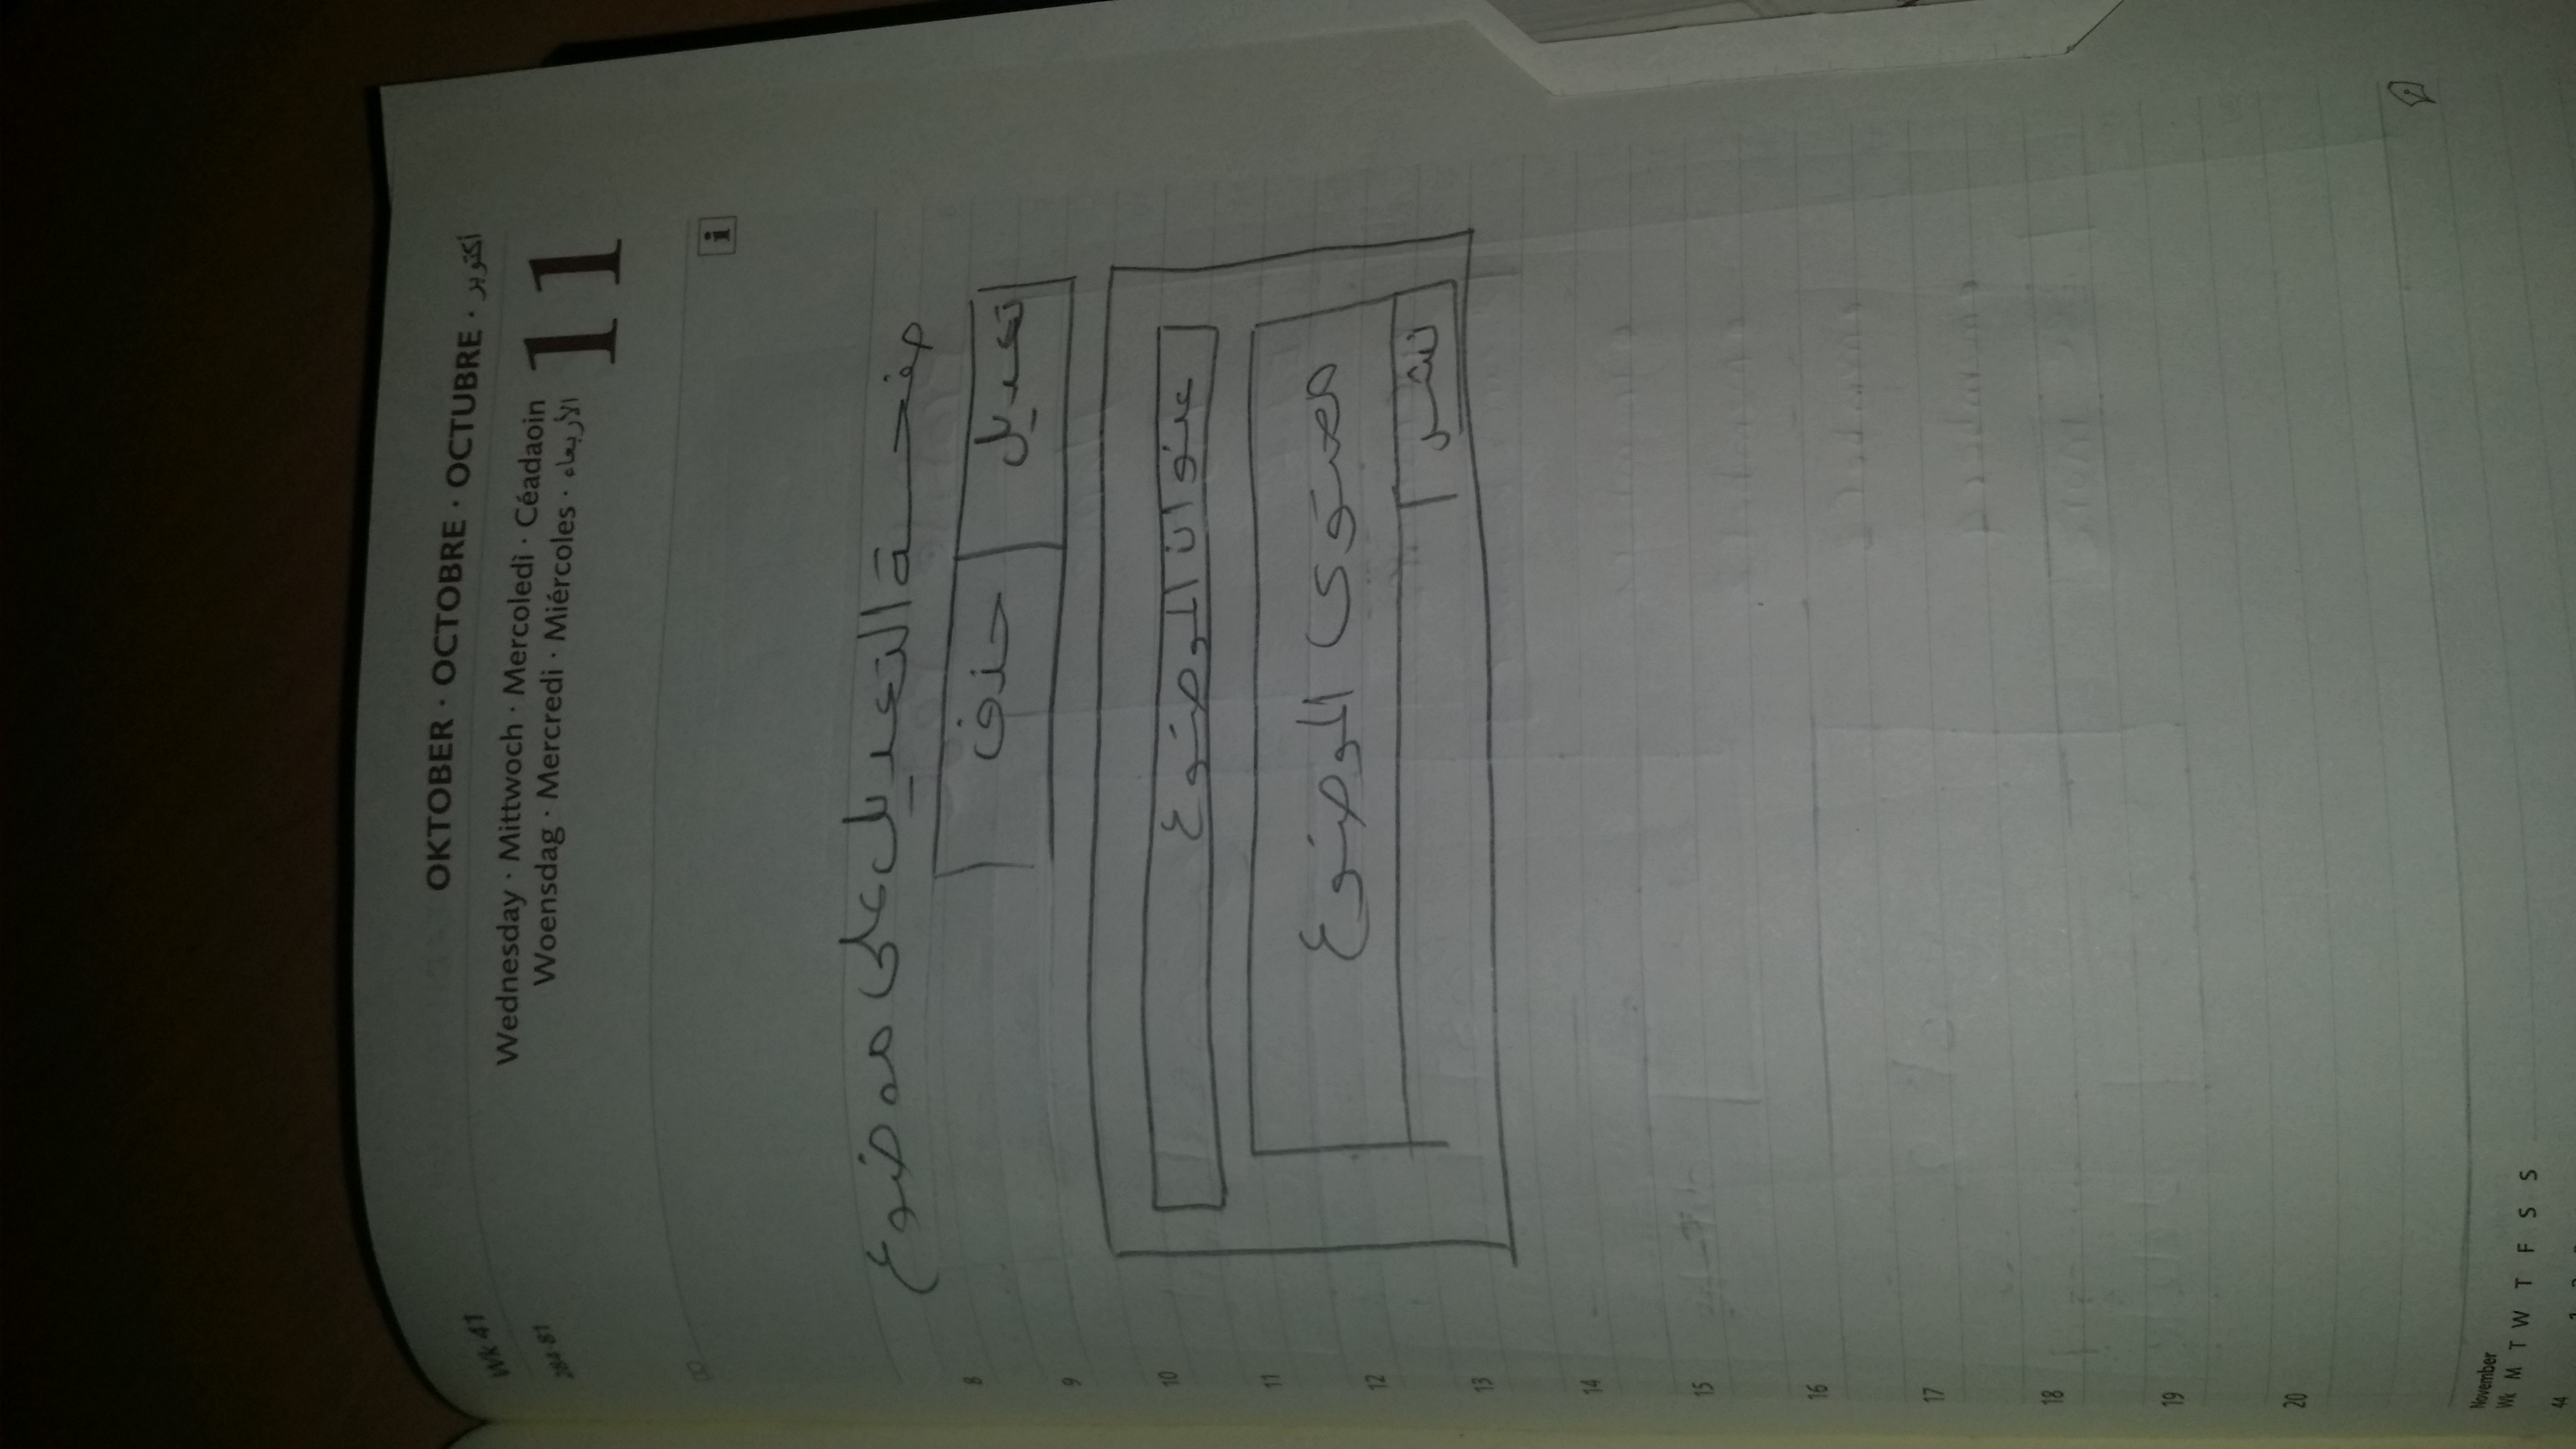 OKTOBER · OCTOBRE · OCTUBRE · أكتوبر
Wk 41
Wednesday · Mittwoch · Mercoledì · Céadaoin
11
284-81
Woensdag · Mercredi · Miércoles · الأربعاء
i
صفحة التعديل على موضوع
8
تعديل حذف
9
10
عنوان الموضوع
11
محتوى الموضوع
12
نشر
13
14
15
16
17
18
19
20
November
Wk M T W T F S S
44